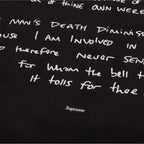 OF THINE OWN WERE
MAN'S DEATH DIMINISH
I AM INVOLVED IN
THEREFORE NEVER SEND
FOR WHOM THE BELL T
IT TOLLS FOR THEE
Supreme